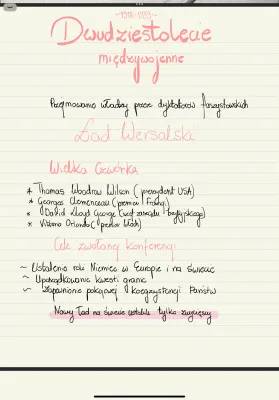 ~1918-1939~
Dwudziestolecie
międzywojenne
Przejmowanie władzy przez dyktatorów faszystowskich
Ład Wersalski
Wielka Czwórka
* Thomas Woodrow Wilson (prezydent USA)
* Georges Clemenceau (premier Francji)
* David Lloyd George (szef rządu brytyjskiego)
* Vittorio Orlando (premier Włoch)
Cele zwołanej konferencji
~ Ustalenie roli Niemiec w Europie i na świecie
~ Uporządkowanie kwestii granic
~ Zapewnienie pokojowej koegzystencji Państw
Nowy Ład na świecie ustalili tylko zwycięzcy